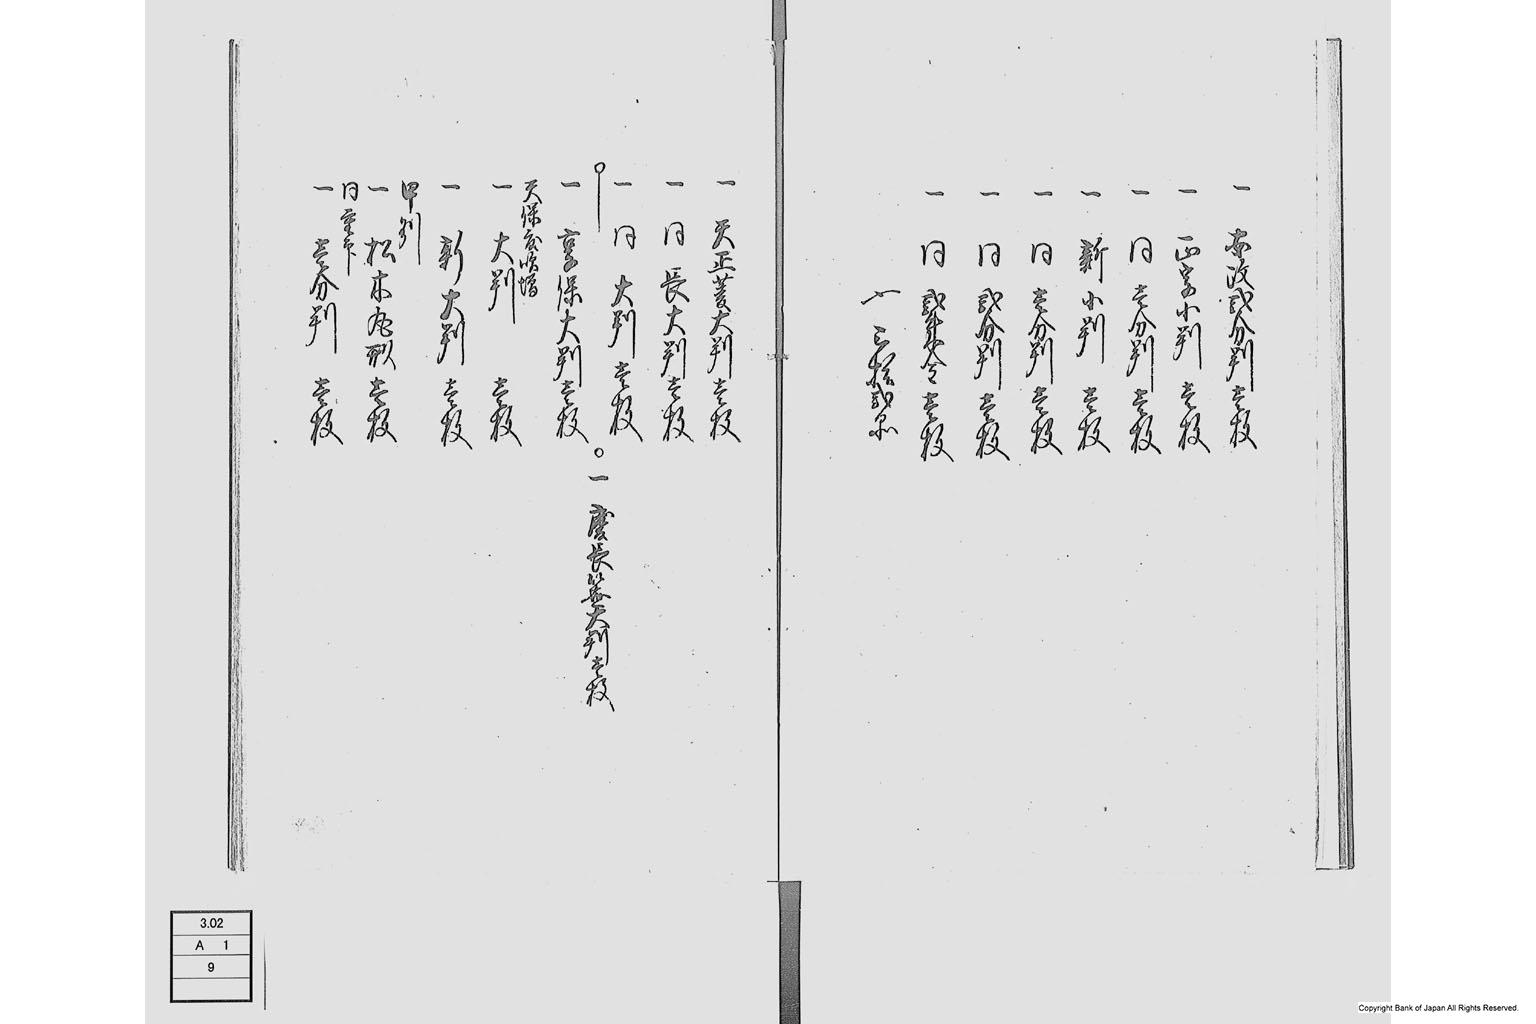 一 安政弐分判壱枚
一 正字小判 壱枚
一 同 壱分判 壱枚
一 新小判 壱枚
一 同 壱分判 壱枚
一 同 弐分判 壱枚
一 同 弐朱金 壱枚
〆 三拾弐品
一 天正菱大判壱枚
一 同 長大判壱枚
一 同 大判 壱枚
一 慶長笹大判壱枚
一 享保大判壱枚
天保度吹増
一 大判 壱枚
一 新大判 壱枚
甲州
一 松木 形 壱枚
同
一 壱分判 壱枚
3.02
A 1
9
Copyright Bank of Japan All Rights Reserved.